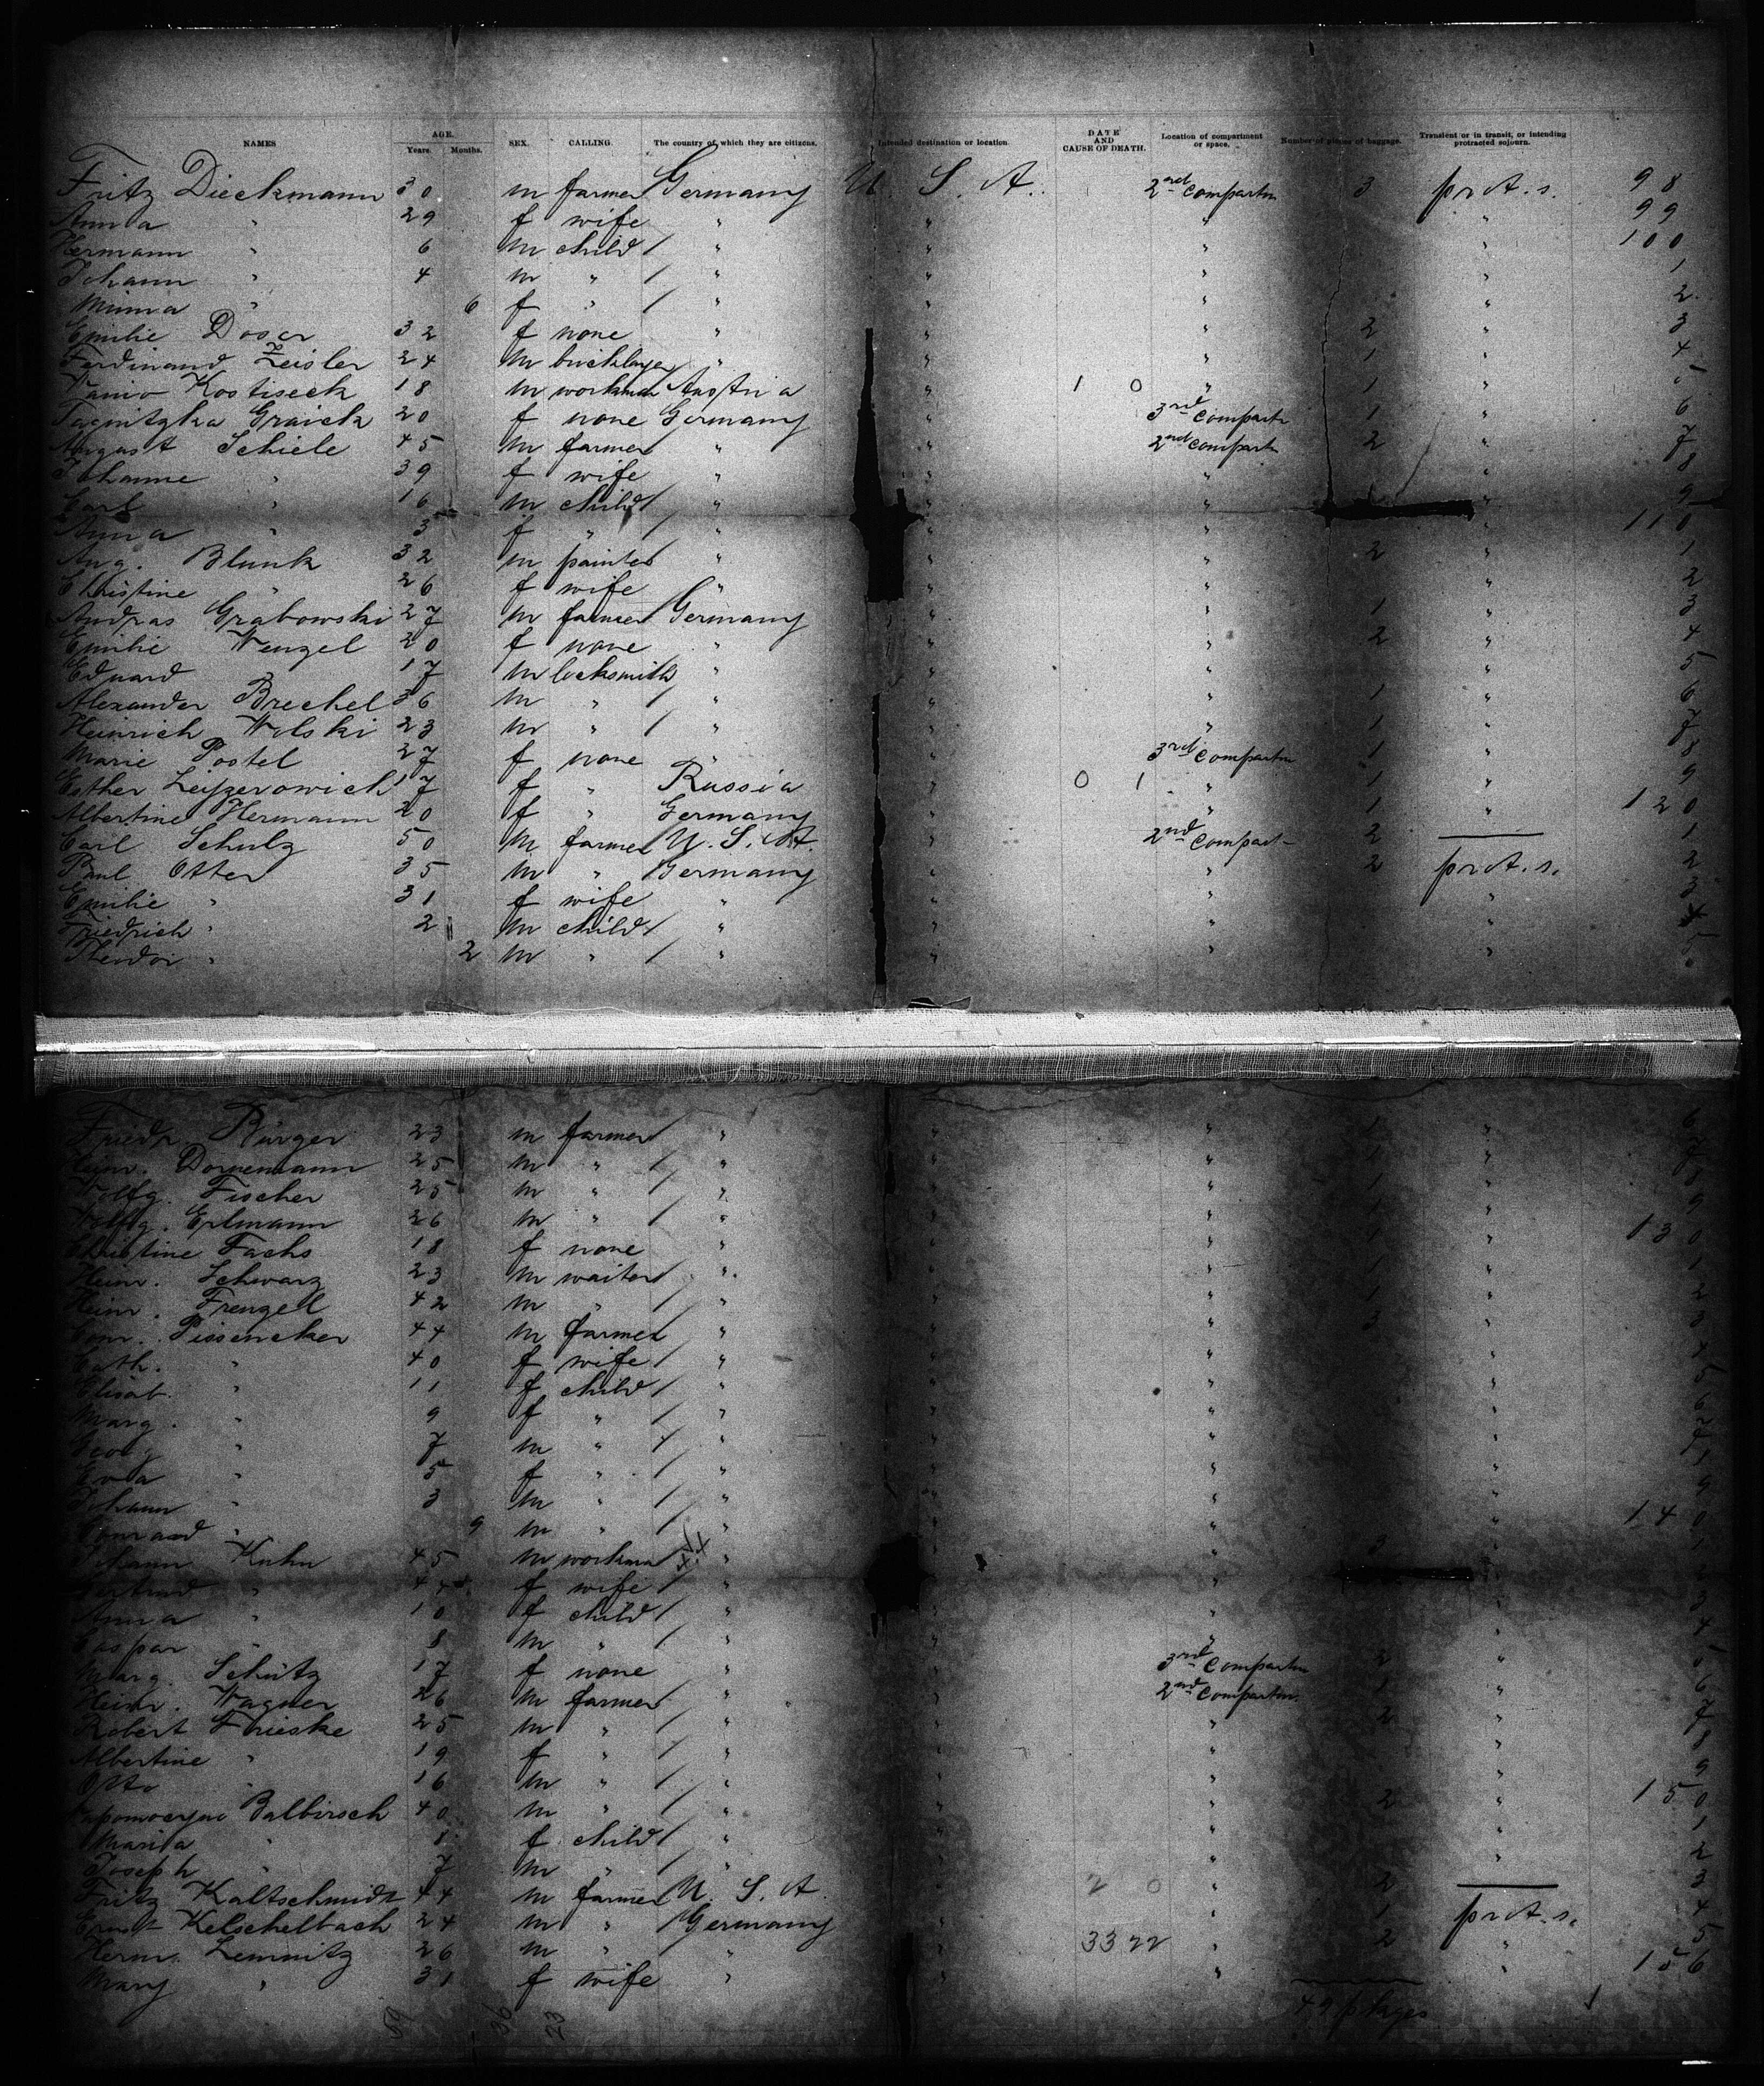 NAMES AGE. Years. Months. SEX. CALLING. The country of which they are citizens. Intended destination or location. DATE AND CAUSE OF DEATH. Location of compartment or space. Number of pieces of baggage. Transient or in transit, or intending protracted sojourn.
Fritz Dieckmann 30 m farmer Germany U. S. A. 2nd Compartm 3 prot. s. 98
Anna " 29 f wife " " " " 99
Hermann " 6 m child / " " " " 100
Johann " 4 m " / " " " " 1
Minna " 6 f " / " " " " 2
Emilie Doser 32 f none " " " 2 " 3
Ferdinand Zeisler 24 m bricklayer " " " 1 " 4
Kostiseck 18 m workman Austria " 1 0 " 1 " 5
Graick 20 f none Germany " 3rd Compartm 1 " 6
August Schiele 45 m farmer " " 2nd Compartm 2 " 7
Johanne " 39 f wife " " " " 8
Carl " 16 m child / " " " " 9
Anna " 3 f " / " " " " 110
Aug. Blunk 32 m painter " " " 2 " 1
Christine " 26 f wife " " " " 2
Andras Grabowski 27 m farmer Germany " " 1 " 3
Emilie Wenzel 20 f none " " " 2 " 4
Eduard " 17 m locksmith " " " " 5
Alexander Brechel 36 m " / " " " 1 " 6
Heinrich Wolski 23 m " / " " " 1 " 7
Marie Postel 27 f none " " 3rd Compartm 1 " 8
Esther Leyzerowich 17 f " Russia " 0 1 " 1 " 9
Albertine Hermann 20 f " Germany " " 1 " 120
Carl Schulz 50 m farmer U. S. A. " 2nd Compart 2 — 1
Paul Otter 35 m " Germany " " 2 prot. s. 2
Emilie " 31 f wife " " " " 3
Friedrich " 2 m child / " " " " 4
Theodor " 2 m " / " " " " 5
Friedr. Bürger 23 m farmer / " " " 1 " 6
Heinr. Dornemann 25 m " / " " " 1 " 7
Wolfg. Fischer 25 m " / " " " 1 " 8
Wolfg. Erlmann 26 m " / " " " 1 " 9
Christine Fachs 18 f none " " " 1 " 130
Heinr. Schwarz 23 m waiter / " " " 1 " 1
Heinr. Frengel 42 m " / " " " 1 " 2
Conr. Pissenecker 44 m farmer " " " 3 " 3
Cath. " 40 f wife / " " " " 4
Elisab. " 11 f child / " " " " 5
Marg. " 9 f " / " " " " 6
Georg " 7 m " / " " " " 7
Eva " 5 f " / " " " "
Johann " 3 m " / " " " " 9
Conrad " 9 m " / " " " " 140
Johann Kuhn 45 m workman " " " " 1
Gertrud " f wife / " " " "
Anna " 10 f child / " " " " 3
Caspar " 8 m " / " " " " 4
Marg. Schütz 17 f none " " 3rd Compartm 2 " 5
Heinr. Wagner 26 m farmer / " " 2nd Compartm. 1 " 6
Robert Frieske 25 m " / " " " 2 " 7
Albertine " 19 f " / " " " " 8
Otto " 16 m " / " " " " 9
Balbirsch 40 m " / " " " 2 " 150
Maria " 8 f child / " " " " 1
Joseph " 7 m " / " " " " 2
Fritz Kaltschmidt 44 m farmer U. S. A. " 2 0 " 2 — 3
Ernst Kelschelbach 24 m " / Germany " " 1 prot. s. 4
Herm. Lemnitz 26 m " / " " 33 22 " 2 " 5
Mary " 31 f wife " " " " 156
59 36 23